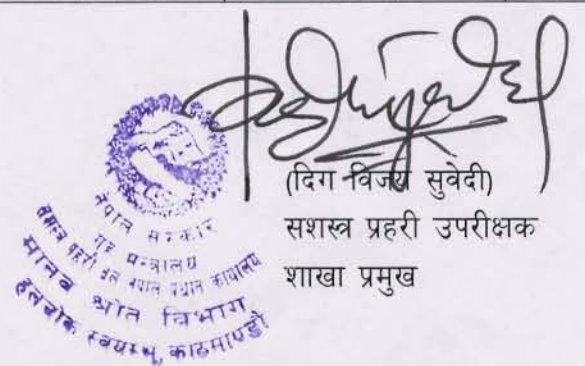 (दिग विजय सुवेदी)
सशस्त्र प्रहरी उपरीक्षक
शाखा प्रमुख
नेपाल सरकार
गृह मन्त्रालय
सशस्त्र प्रहरी बल नेपाल प्रधान कार्यालय
मानव श्रोत विभाग
हलचोक स्वयम्भू, काठमाण्डौ